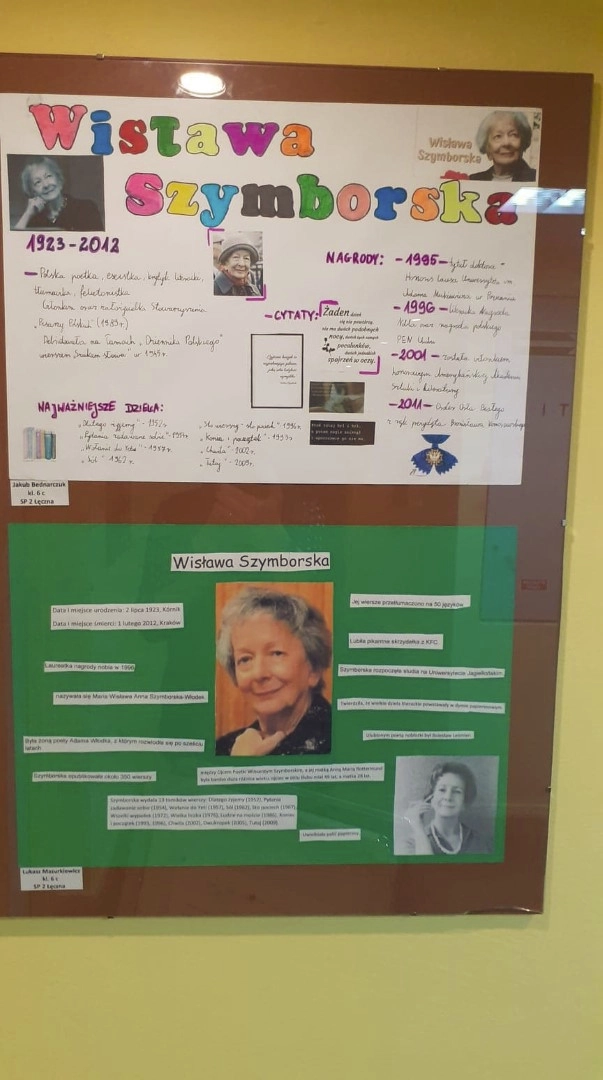 Wisława
Szymborska
Wisława
Szymborska
1923-2012
- Polska poetka, eseistka, krytyk literacki,
tłumaczka, felietonistka
Członkini oraz założycielka Stowarzyszenia
„Pisarzy Polskich" (1989r.)
Debiutowała na łamach „Dziennika Polskiego"
wierszem „Szukam słowa" w 1945r.
NAJWAŻNIEJSZE DZIEŁA:
„Dlatego żyjemy" - 1952r.
„Pytania zadawane sobie" - 1954r.
„Wołanie do Yeti" - 1957r.
„Sól" - 1962r.
„Sto wierszy - sto pociech" - 1996r.
„Koniec i początek" - 1993r.
„Chwila" - 2002r.
„Tutaj" - 2009r.
- CYTATY:
Żaden dzień
się nie powtórzy,
nie ma dwóch podobnych
nocy, dwóch tych samych
pocałunków,
dwóch jednakich
spojrzeń w oczy.
NAGRODY: - 1995 - tytuł doktora
Honoris Causa Uniwersytetu im.
Adama Mickiewicza w Poznaniu
- 1996 - Literacka Nagroda
Nobla oraz nagroda polskiego
PEN Clubu
- 2001 - została członkiem
honorowym Amerykańskiej Akademii
Sztuki i Literatury
- 2011 - Order Orła Białego
z rąk prezydenta Bronisława Komorowskiego
Jakub Bednarczuk
kl. 6 c
SP 2 Łęczna
Wisława Szymborska
Data i miejsce urodzenia: 2 lipca 1923, Kórnik
Data i miejsce śmierci: 1 lutego 2012, Kraków
Laureatka nagrody nobla w 1996
nazywała się Maria Wisława Anna Szymborska-Włodek
Była żoną poety Adama Włodka, z którym rozwiodła się po sześciu
latach
Szymborska opublikowała około 350 wierszy
Jej wiersze przetłumaczono na 50 języków
Lubiła pikantne skrzydełka z KFC
Szymborska rozpoczęła studia na Uniwersytecie Jagiellońskim
Twierdziła, że wielkie dzieła literackie powstawały w
Ulubionym poetą noblistki był Bolesław Leśmian
między Ojcem Poetki Wincentym Szymborskim, a jej matką Anną Marią Rottermund
była bardzo duża różnica wieku ojciec w dniu ślubu miał 46 lat, a matka 28 lat.
Szymborska wydała 13 tomików wierszy: Dlatego żyjemy (1952), Pytania
zadawane sobie (1954), Wołanie do Yeti (1957), Sól (1962), Sto pociech (1967),
Wszelki wypadek (1972), Wielka liczba (1976), Ludzie na moście (1986), Koniec
i początek (1993, 1996), Chwila (2002), Dwukropek (2005), Tutaj (2009)
Uwielbiała palić papierosy
Łukasz Mazurkiewicz
kl. 6 c
SP 2 Łęczna